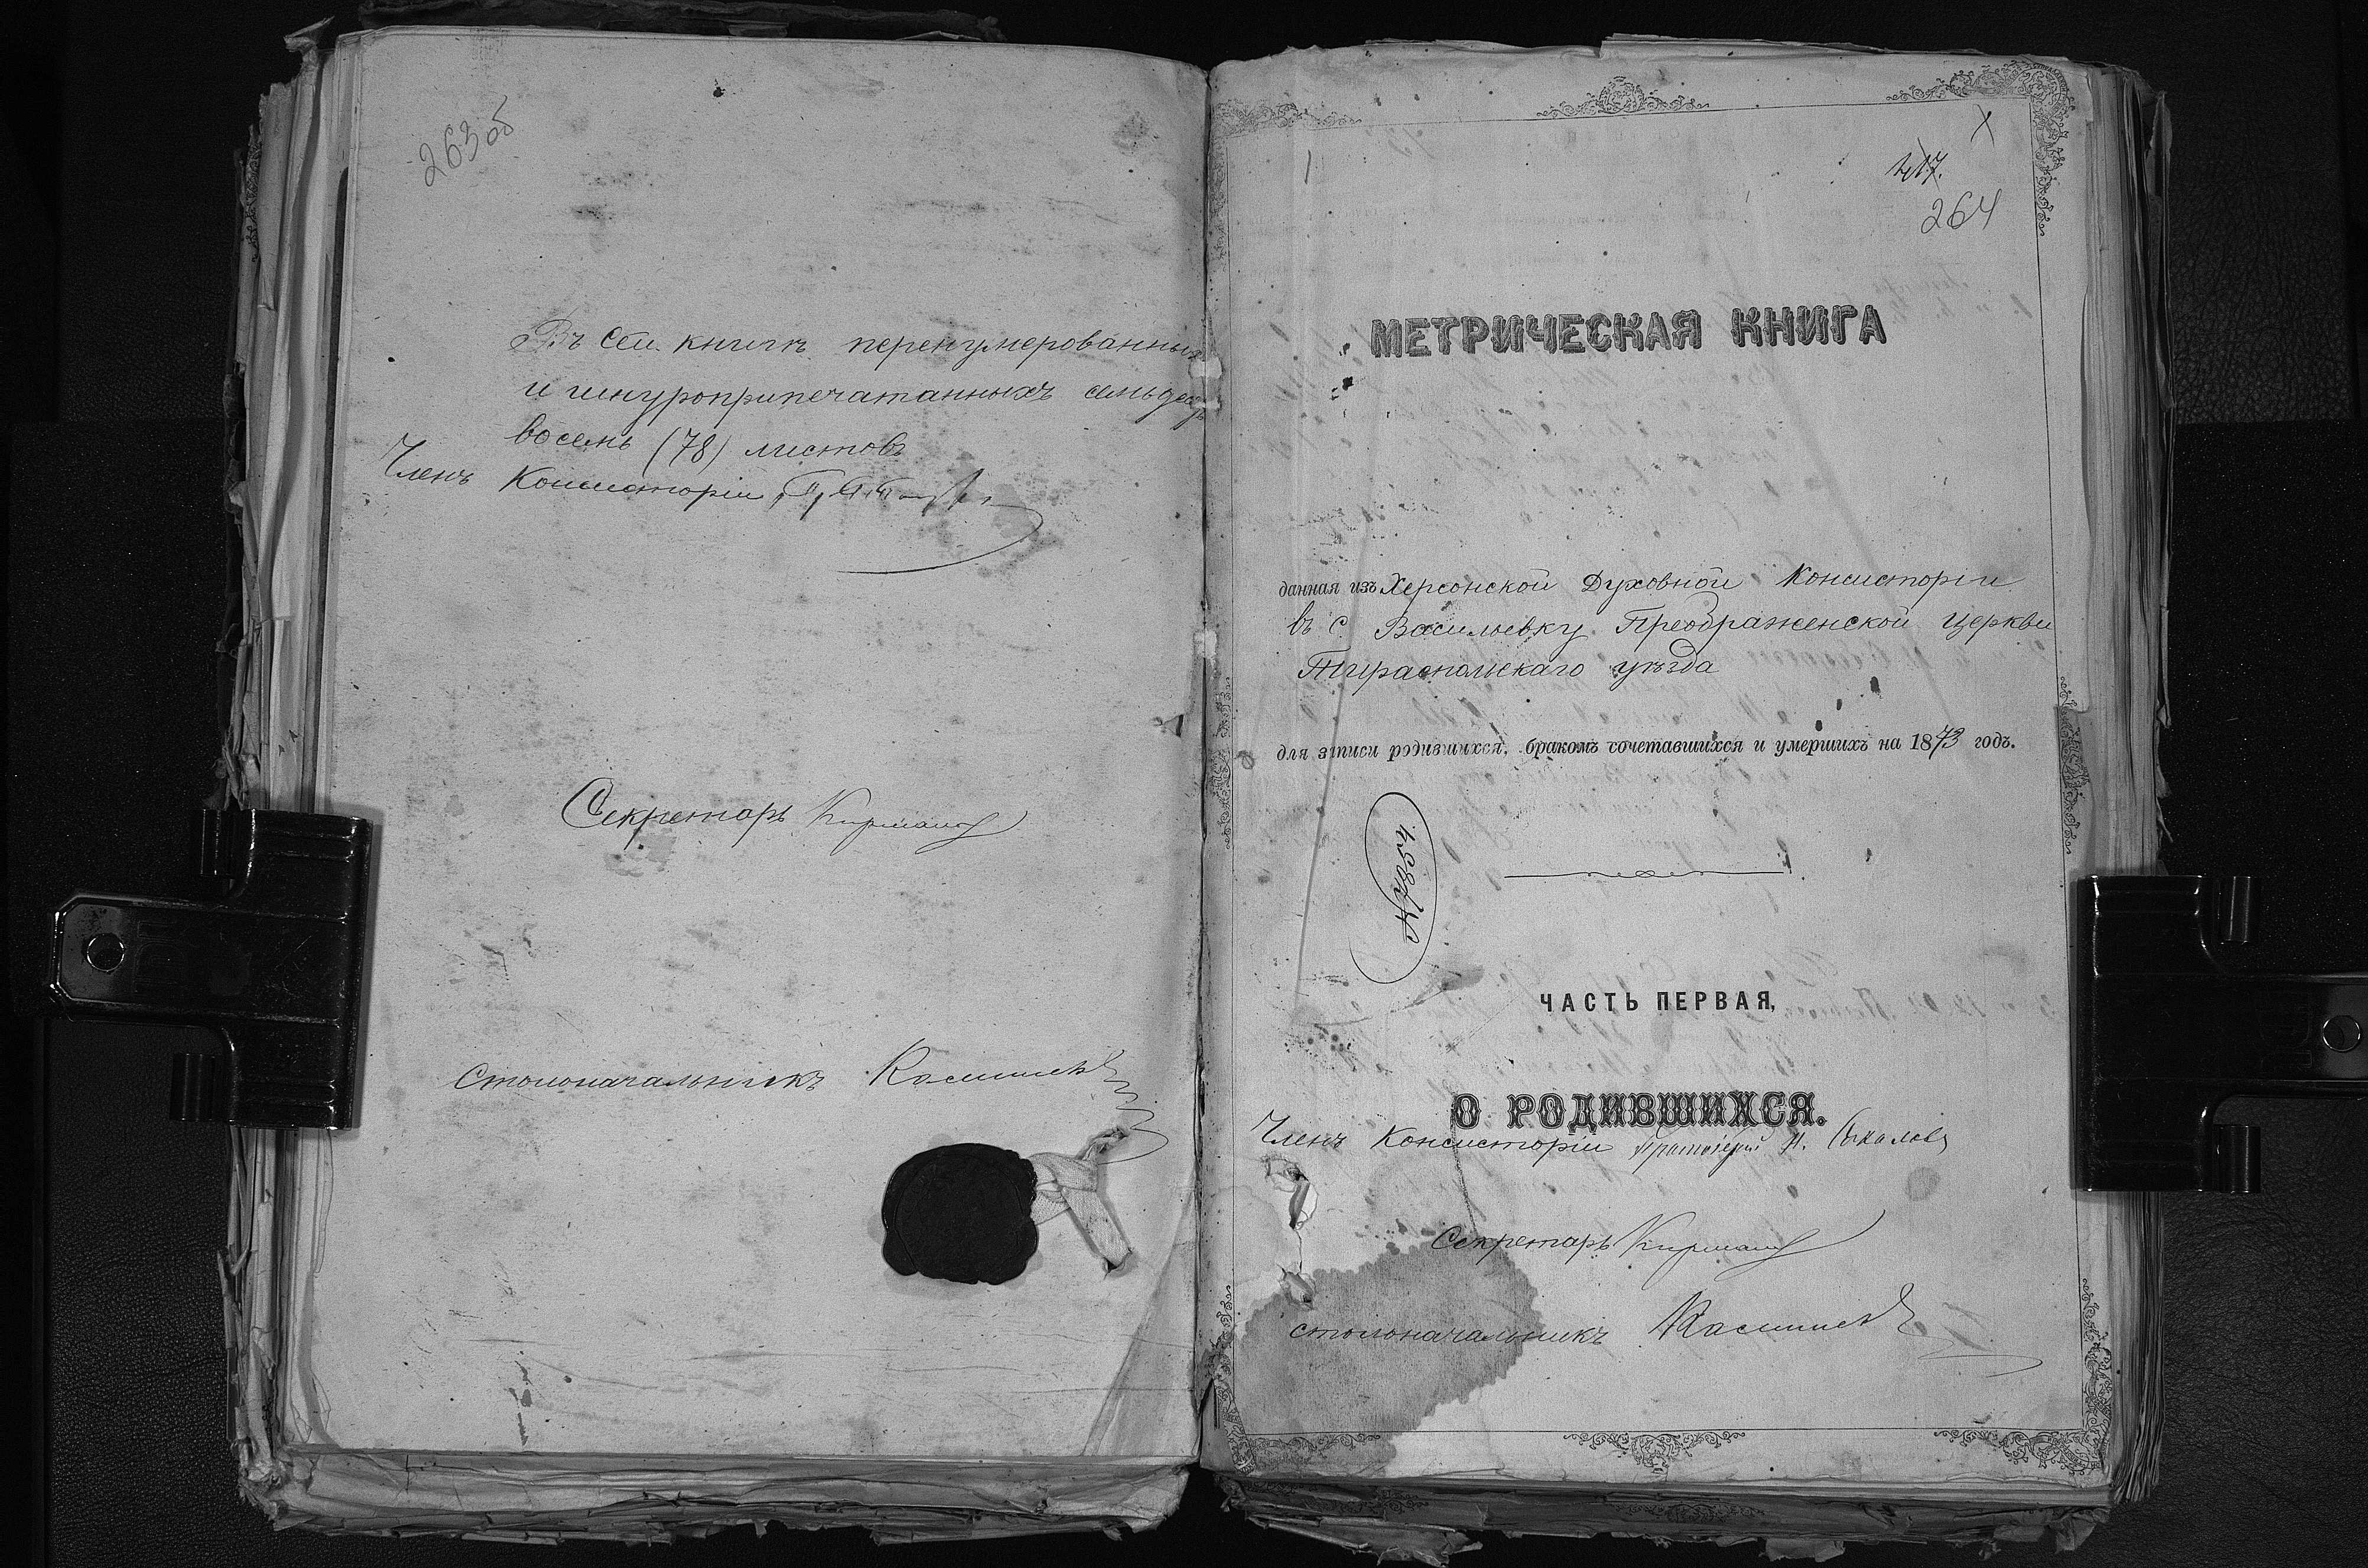 263 об
Въ сей книгѣ перенумерованных
и шнуроприпечатанныхъ семьдесят
восемь (78) листовъ
Членъ Консисторіи
Секретарь
Столоначальникъ
417.
264
МЕТРИЧЕСКАЯ КНИГА
данная изъ Херсонской Духовной Консисторіи
въ с. Васильевку Преображенской Церкви
Тираспольскаго уѣзда
для записи родившихся, бракомъ сочетавшихся и умершихъ на 1873 годъ.
ЧАСТЬ ПЕРВАЯ,
О РОДИВШИХСЯ.
Членъ Консисторіи Протоіерей
Секретарь
столоначальникъ